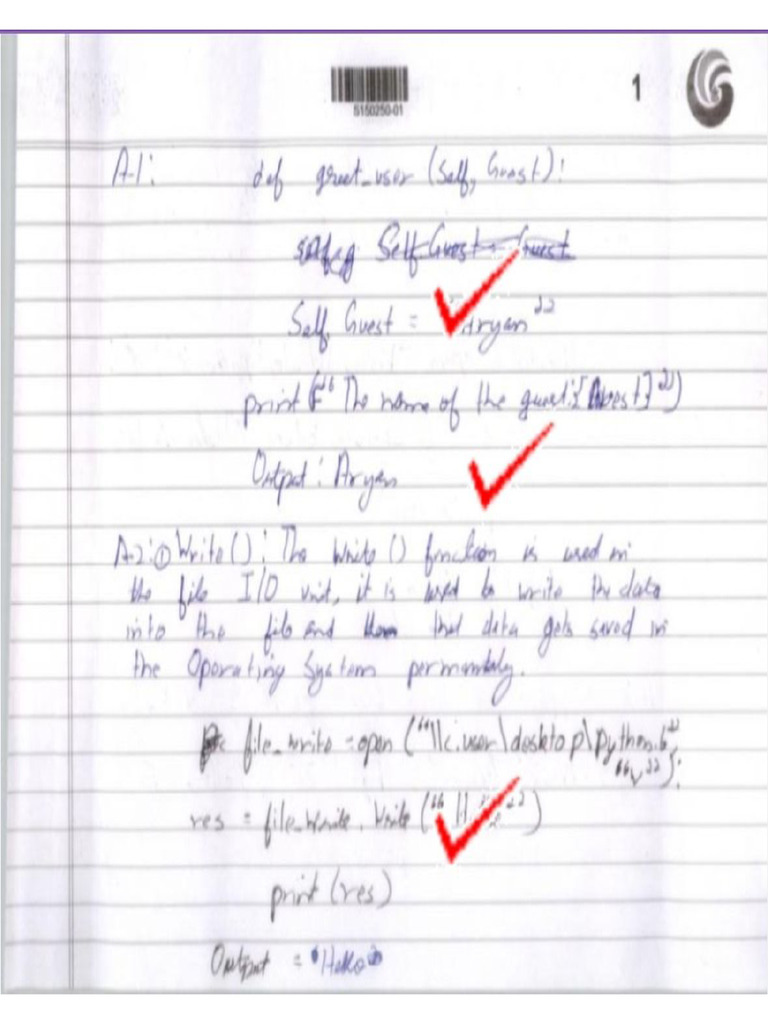 S150250-01
1
A-1: def greet_user (Self, Guest):
Self Guest = Guest
Self Guest = "Aryan"
print(F"The name of the guest:{Guest}")
Output: Aryan
A-2: ① Write(): The Write() function is used in
the file I/O unit, it is used to write the data
into the file and that data gets saved in
the Operating System
file_write = open ("\\c:user\desktop\python.
res = file_write.write("
print (res)
Output = "Hello"